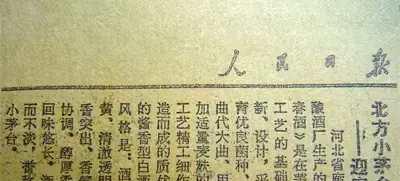 人民日报
北方小茅
——迎
河北省廊
酿酒厂生产的
春酒》是在茅
工艺的基础
新、设计,采
曲代大曲、用
育优良菌种,
加适量麦麸的
工艺精工细作
造而成的质优
的酱香型白酒
风格是:酒
黄、清澈透明
香突出、香
协调、醇厚
回味悠长、
而不淡、香
小茅台